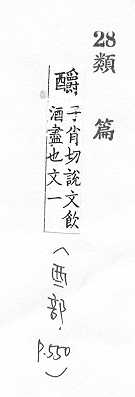 28
類篇
釂子肖切說文飲
酒盡也文一
(酉部.
p.550)